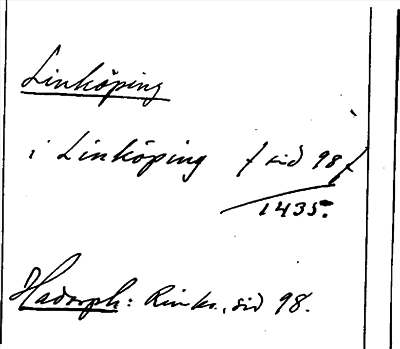 Linköping
i Linköping / sid 98 /
1435.
Hadorph: Rimkr., sid 98.